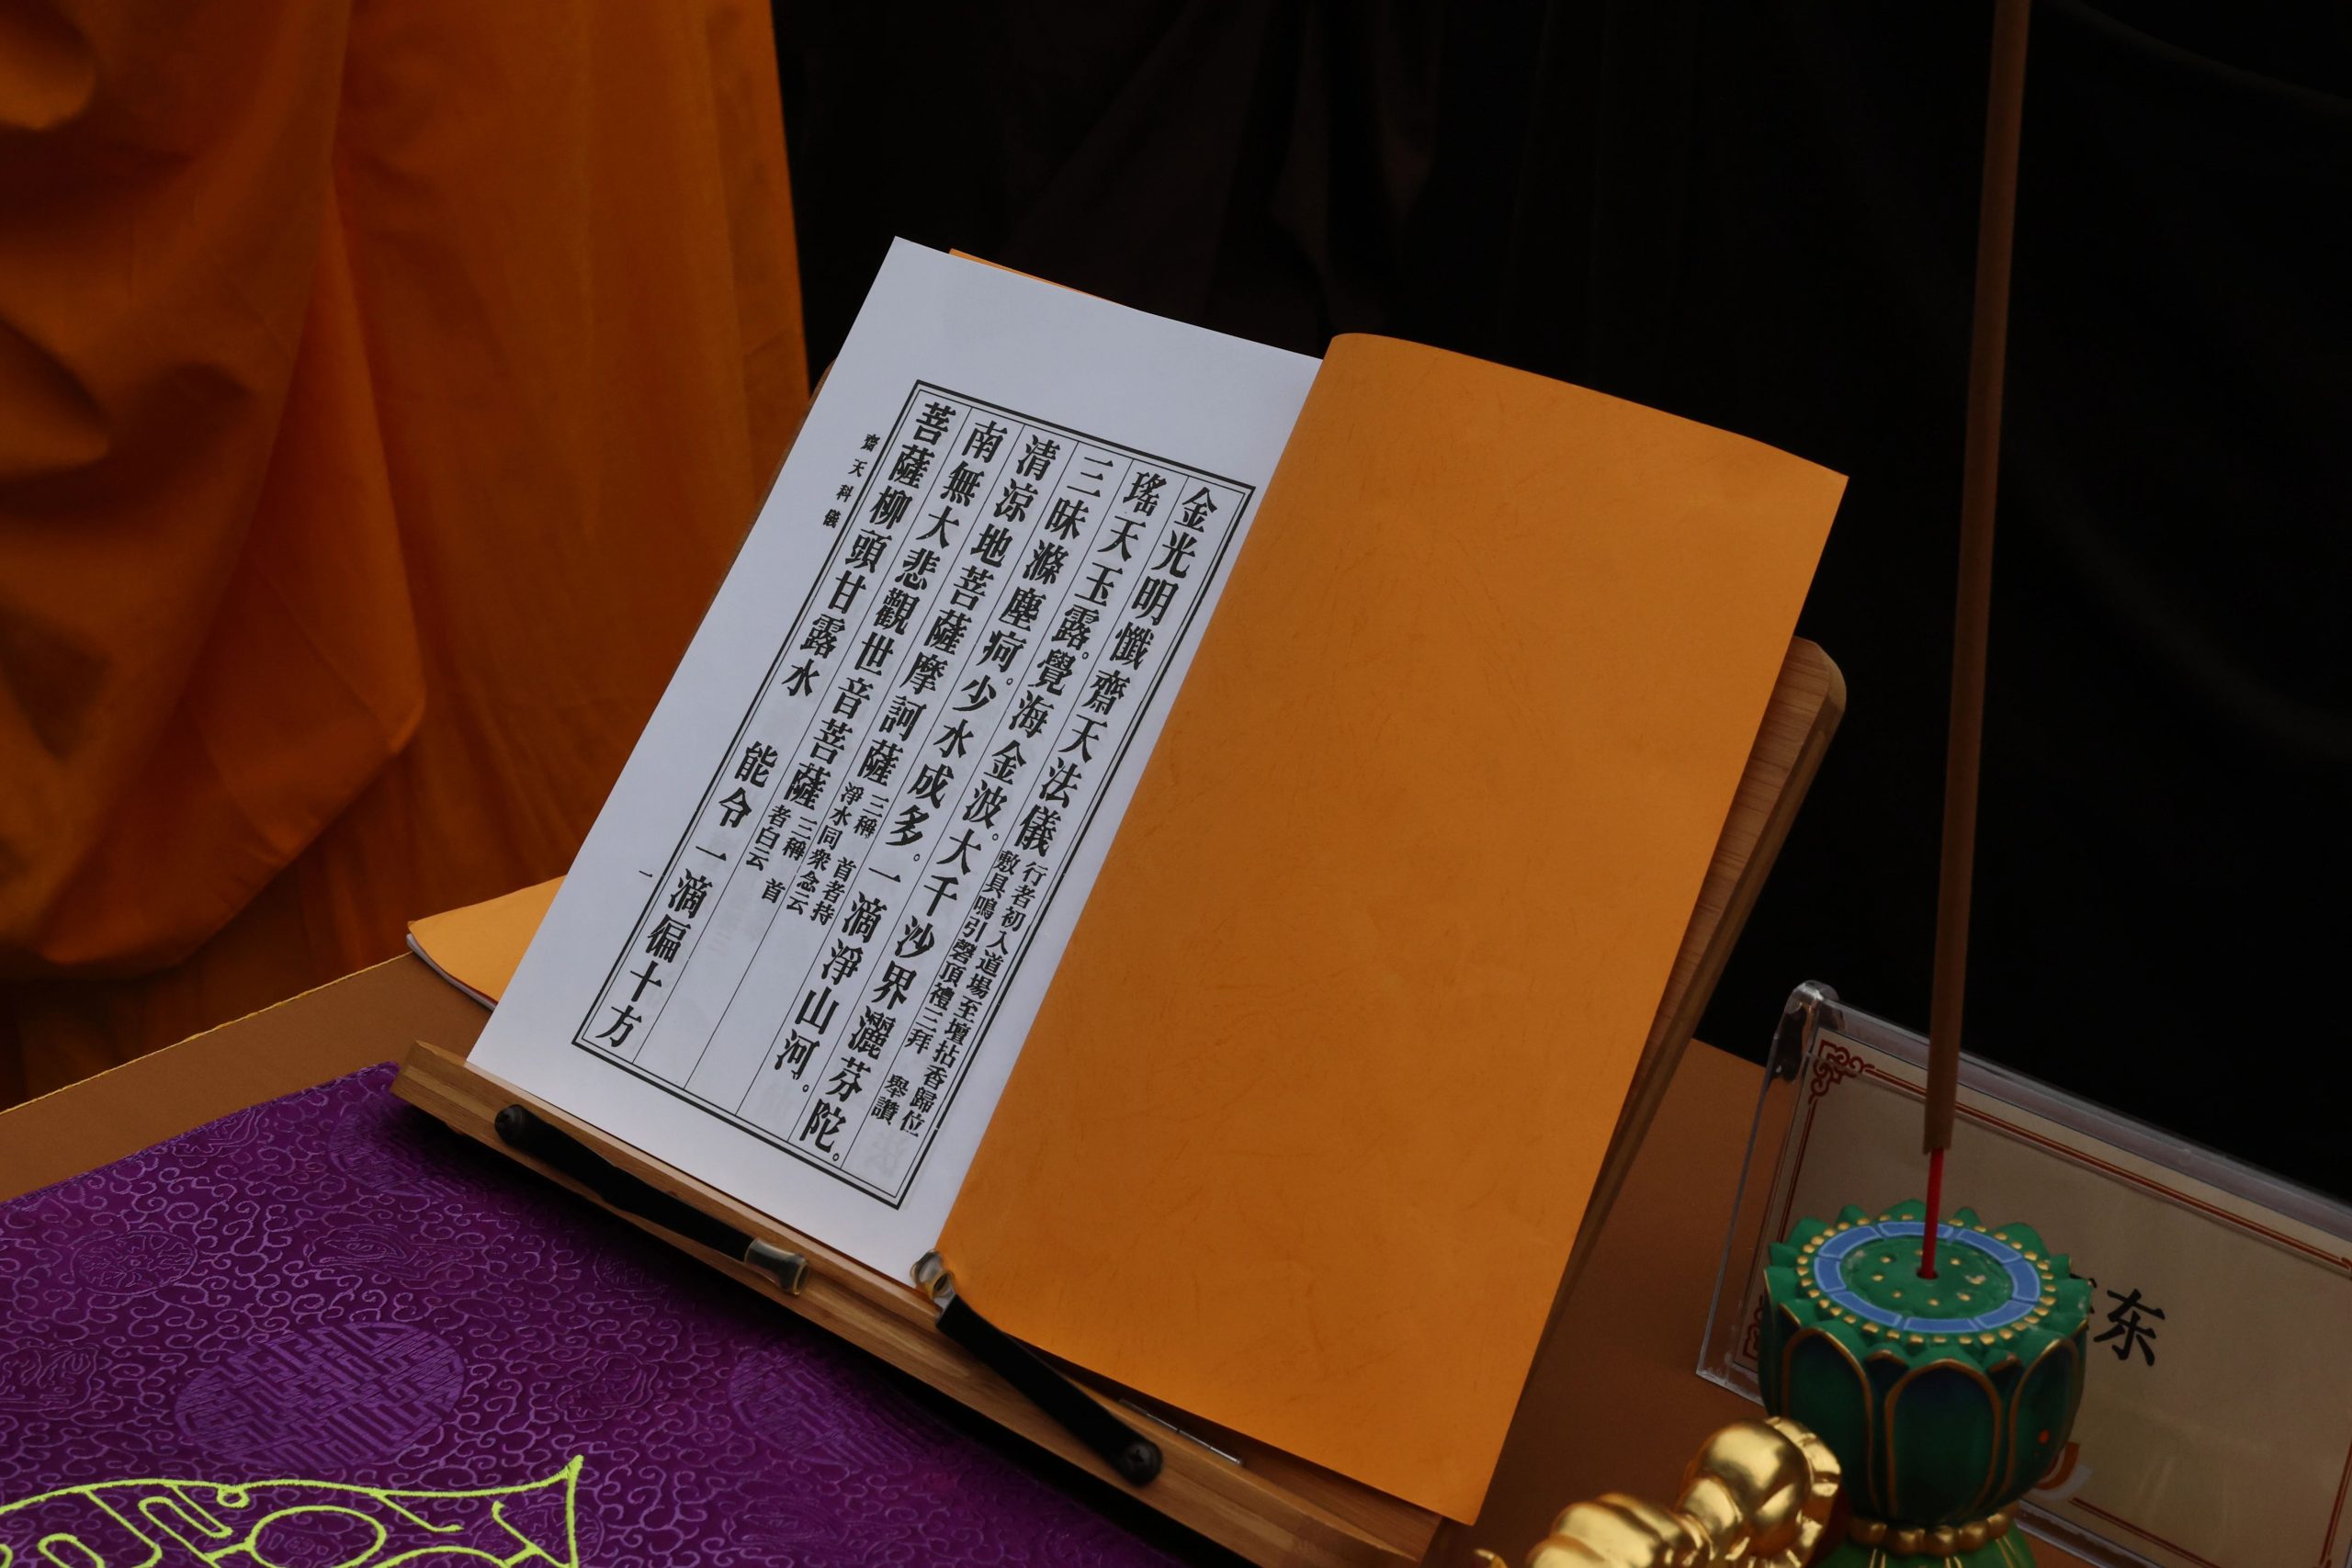 金光明懺齋天法儀 行者初入道場至壇拈香歸位
敷具鳴引磬頂禮三拜 舉讚
瑤天玉露。覺海金波。大千沙界灑芬陀。
三昧滌塵疴。少水成多。一滴淨山河。
清涼地菩薩摩訶薩 三稱 首者持
淨水同衆念云
南無大悲觀世音菩薩 三稱 首
者白云
菩薩柳頭甘露水 能令一滴偏十方
齋天科儀 一
东